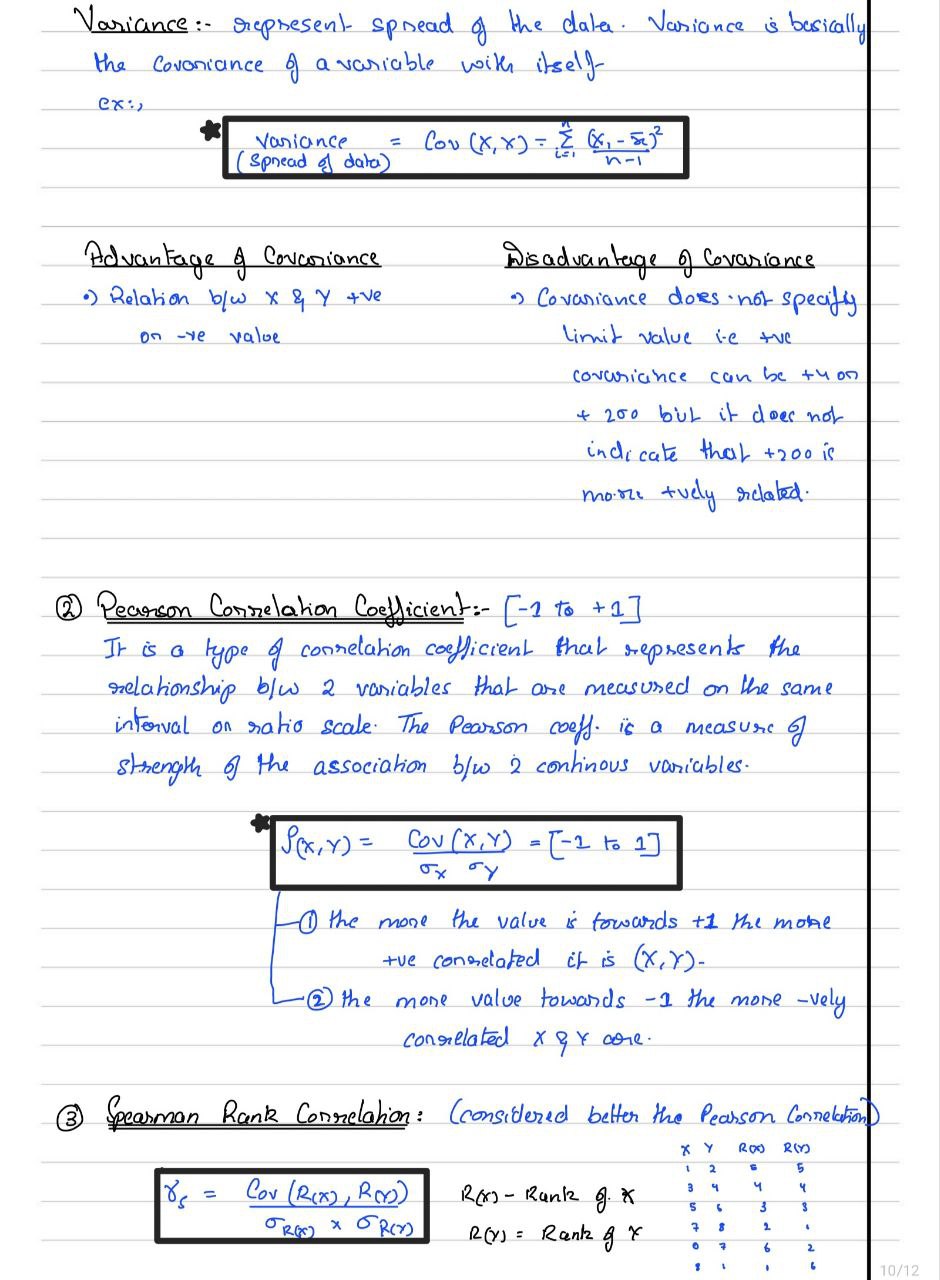 Variance :- represent spread of the data. Variance is basically
the Covariance of a variable with itself
ex:,
★ variance = Cov (X, X) = n Σ i=1 (x₁ - x̄)² / n-1
(Spread of data)
Advantage of Covariance
•) Relation b/w X & Y +ve
or -ve value
Disadvantage of Covariance
•) Covariance does not specify
limit value i.e +ve
covariance can be +4 or
+ 200 but it does not
indicate that +200 is
more +vely related.
② Pearson Correlation Coefficient:- [-1 to +1]
It is a type of correlation coefficient that represents the
relationship b/w 2 variables that are measured on the same
interval or ratio scale. The Pearson coeff. is a measure of
strength of the association b/w 2 continous variables.
★ ρ(X,Y) = Cov (X,Y) / σx σY = [-1 to 1]
① the more the value is towards +1 the more
+ve correlated it is (X,Y).
② the more value towards -1 the more -vely
correlated X & Y are.
③ Spearman Rank Correlation: (considered better the Pearson Correlation)
γs = Cov (R(X), R(Y)) / σR(X) × σR(Y)
R(x) - Rank of x
R(Y) = Rank of Y
X Y R(X) R(Y)
1 2 5 5
3 4 4 4
5 6 3 3
7 8 2 1
0 7 6 2
8 1 1 6
10/12